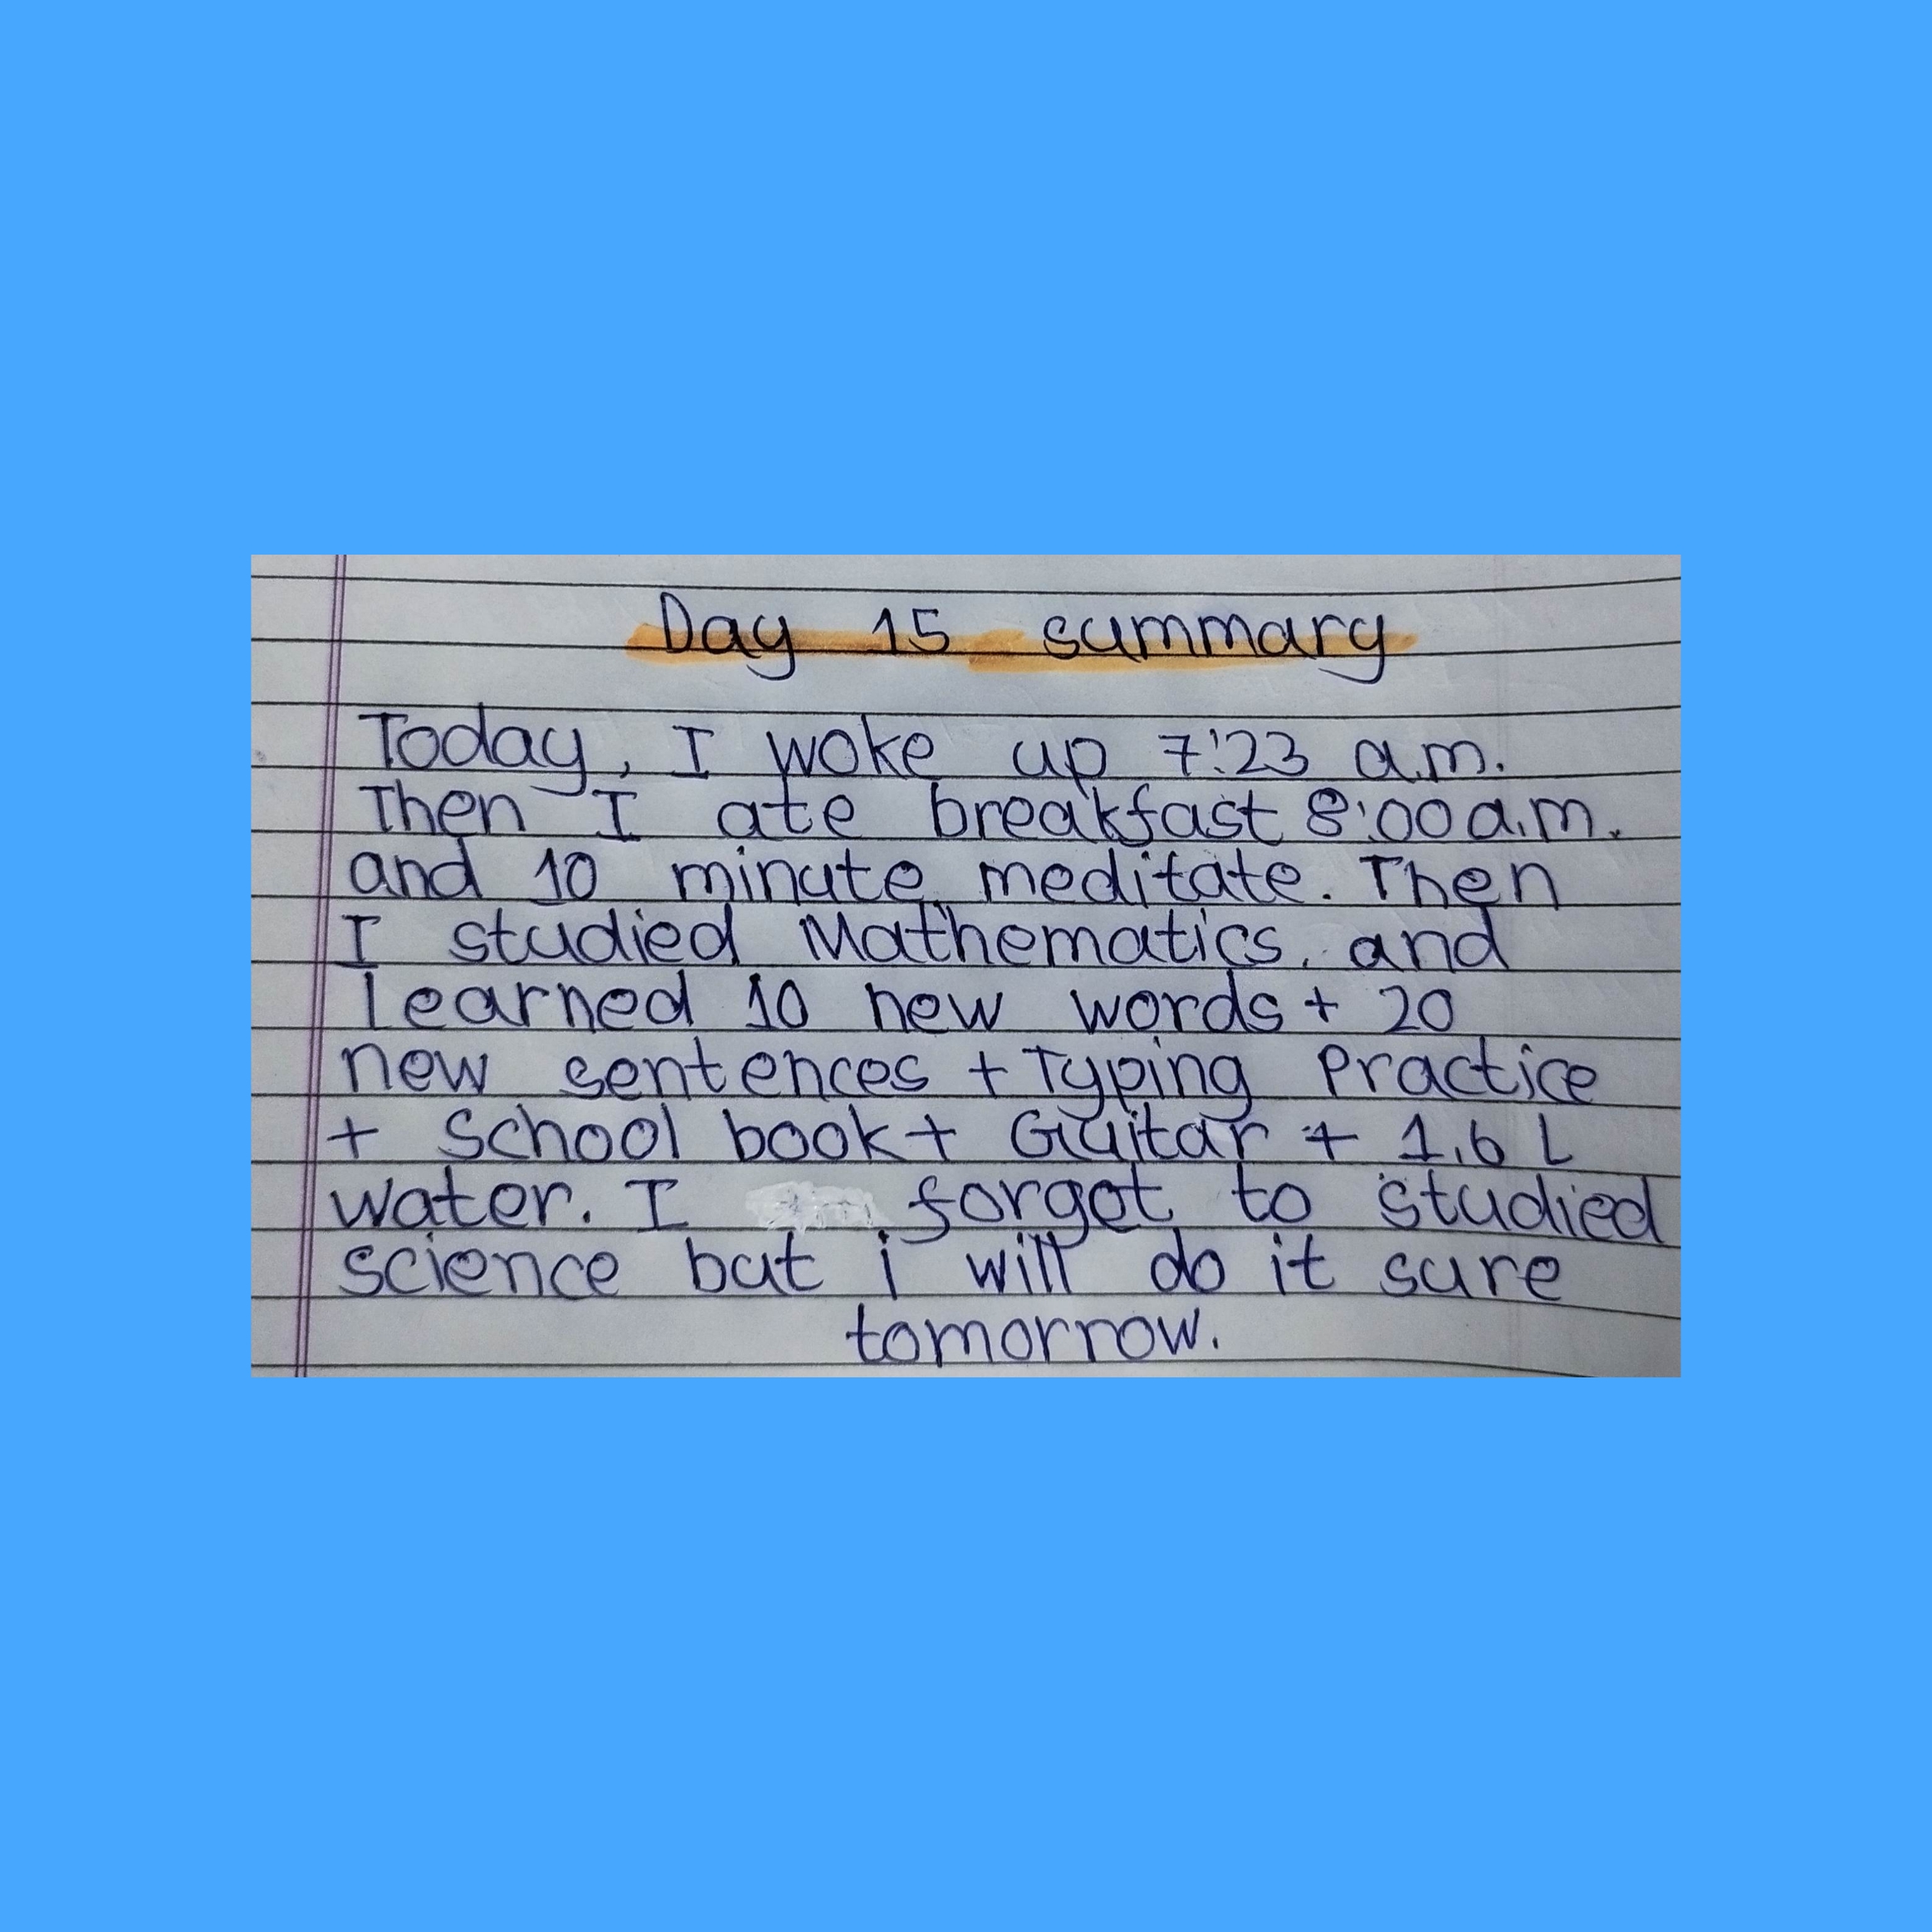 Day 15 summary
Today, I woke up 7:23 a.m.
Then I ate breakfast 8:00 a.m.
and 10 minute meditate. Then
I studied Mathematics. and
learned 10 new words + 20
new sentences + Typing Practice
+ School book + Guitar + 1.6 L
water. I forgot to studied
science but i will do it sure
tomorrow.